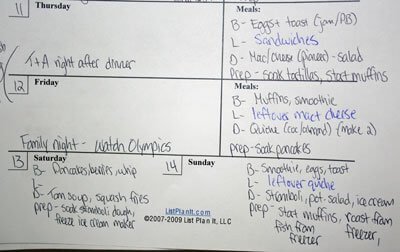 11 Thursday
Meals:
B- Eggs + toast (jam/PB)
L- Sandwiches
D- Mac/cheese (pioneer) - salad
prep - soak tortillas, start muffins
T+A right after dinner
12 Friday
Meals:
B- Muffins, smoothie
L- leftover mac+cheese
D- Quiche (coc/almond) (make 2)
prep - soak pancakes
Family night - Watch Olympics
13 Saturday
B- Pancakes/berries, whip
L-
D- Tom soup, squash fries
prep - soak stromboli dough,
freeze ice cream maker
14 Sunday
B- Smoothie, eggs, toast
L- leftover quiche
D- Stromboli, pot. salad, ice cream
prep - start muffins, roast from freezer,
fish from freezer
ListPlanIt.com
©2007-2009 List Plan It, LLC